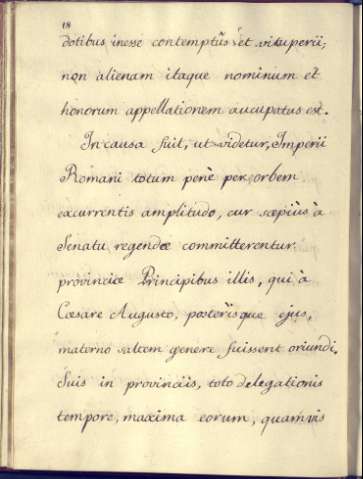 18
dotibus inesse contemptûs et vituperii;
non alienam itaque nominum et
honorum appellationem aucupatus est.
In causa fuit, ut videtur, Imperii
Romani totum penè per orbem
excurrentis amplitudo, cur sœpiùs à
Senatu regendœ committerentur
provinciœ Principibus illis, qui à
Cœsare Augusto, posterîsque ejus,
materno saltem genere fuissent oriundi.
Suis in provinciis, toto delegationis
tempore, maxima eorum, quamvis